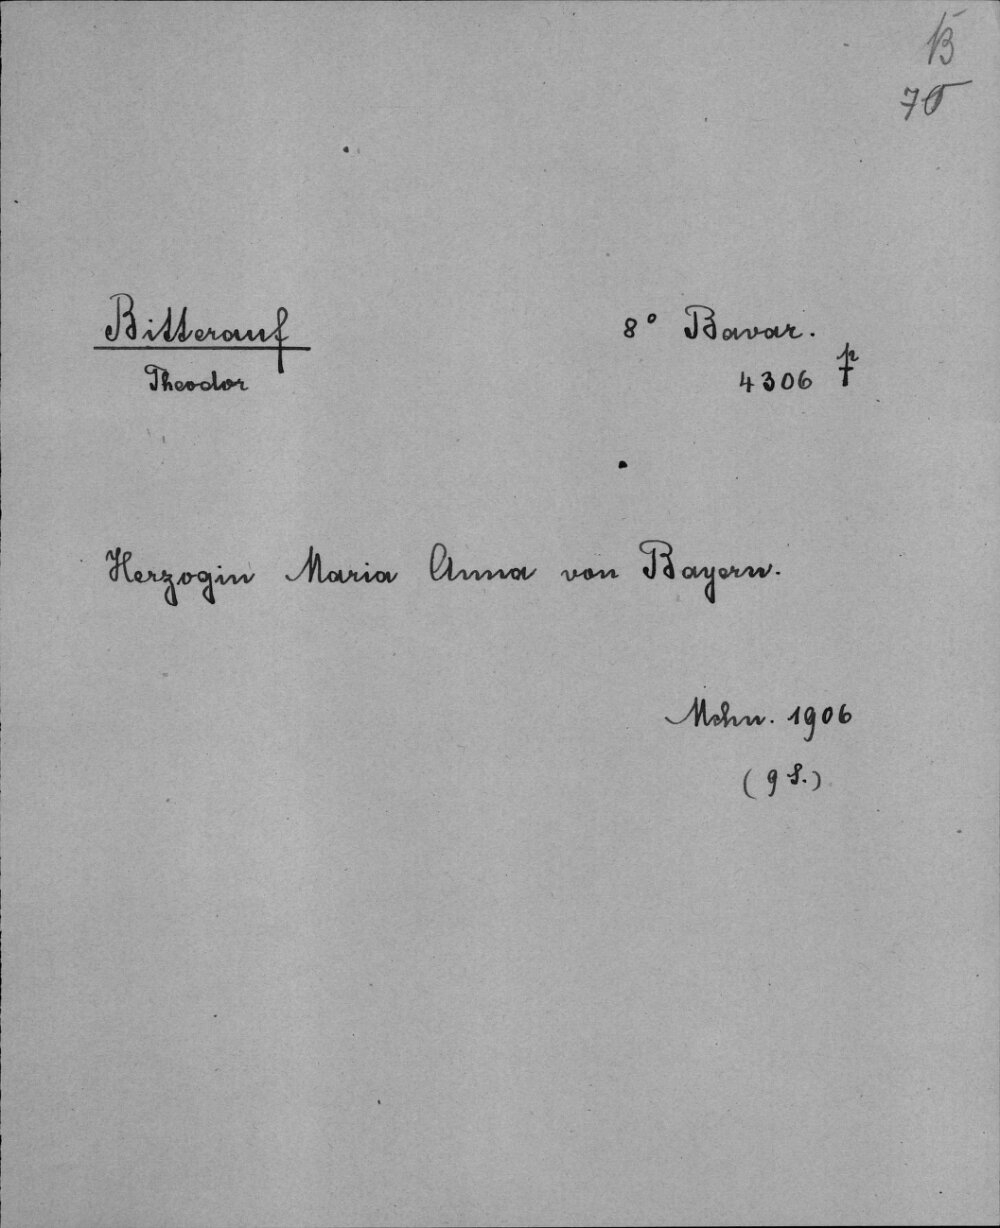 B
70
Bitterauf
Theodor
8° Bavar.
4306 p
Herzogin Maria Anna von Bayern.
Mchn. 1906
(9 S.)